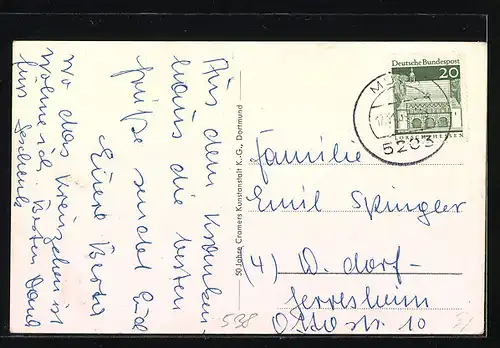 Aus dem Kranken-
haus die besten
Grüße sendet Euch
Eure Berta
Wo das Kreuzchen ist
wohne ich. Besten Dank
fürs Geschenk
50 Jahre Cramers Kunstanstalt K.-G., Dortmund
Deutsche Bundespost
20
LORSCH/HESSEN
5203
Familie
Emil Springer
(4) D. dorf-
Gerresheim
Ottostr. 10
538